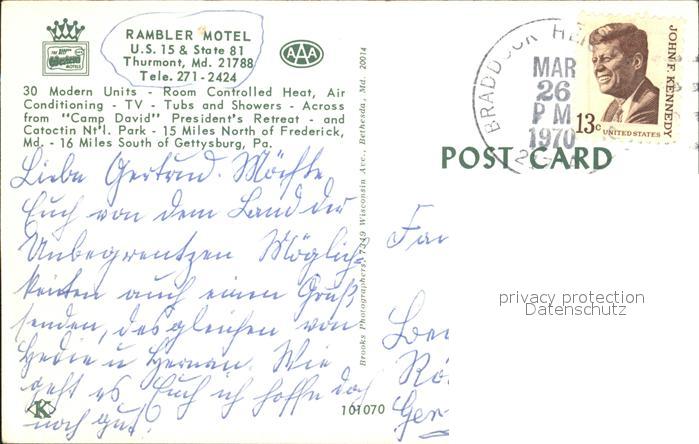 RAMBLER MOTEL
U.S. 15 & State 81
Thurmont, Md. 21788
Tele. 271-2424
AAA
30 Modern Units - Room Controlled Heat, Air
Conditioning - TV - Tubs and Showers - Across
from "Camp David" President's Retreat - and
Catoctin Nt'l. Park - 15 Miles North of Frederick,
Md. - 16 Miles South of Gettysburg, Pa.
Liebe Gertrud. Möchte
Euch von dem Land der
Unbegrentzen Möglich-
keiten auch einen Gruß
senden, desgleichen von
Hedie u Herman. Wie
geht es Euch ich hoffe doch
noch gut.
K
101070
Brooks Photographers, 7349 Wisconsin Ave., Bethesda, Md. 20014
BRADDOCK HE
MAR
26
PM
1970
JOHN F. KENNEDY
13c UNITED STATES
POST CARD
privacy protection
Datenschutz